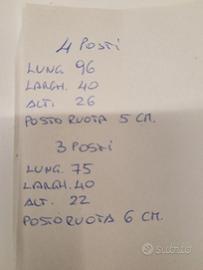 4 POSTI
LUNG 96
LARGH. 40
ALT. 26
POSTO RUOTA 5 CM.
3 POSTI
LUNG. 75
LARGH. 40
ALT. 22
POSTO RUOTA 6 CM.
subito